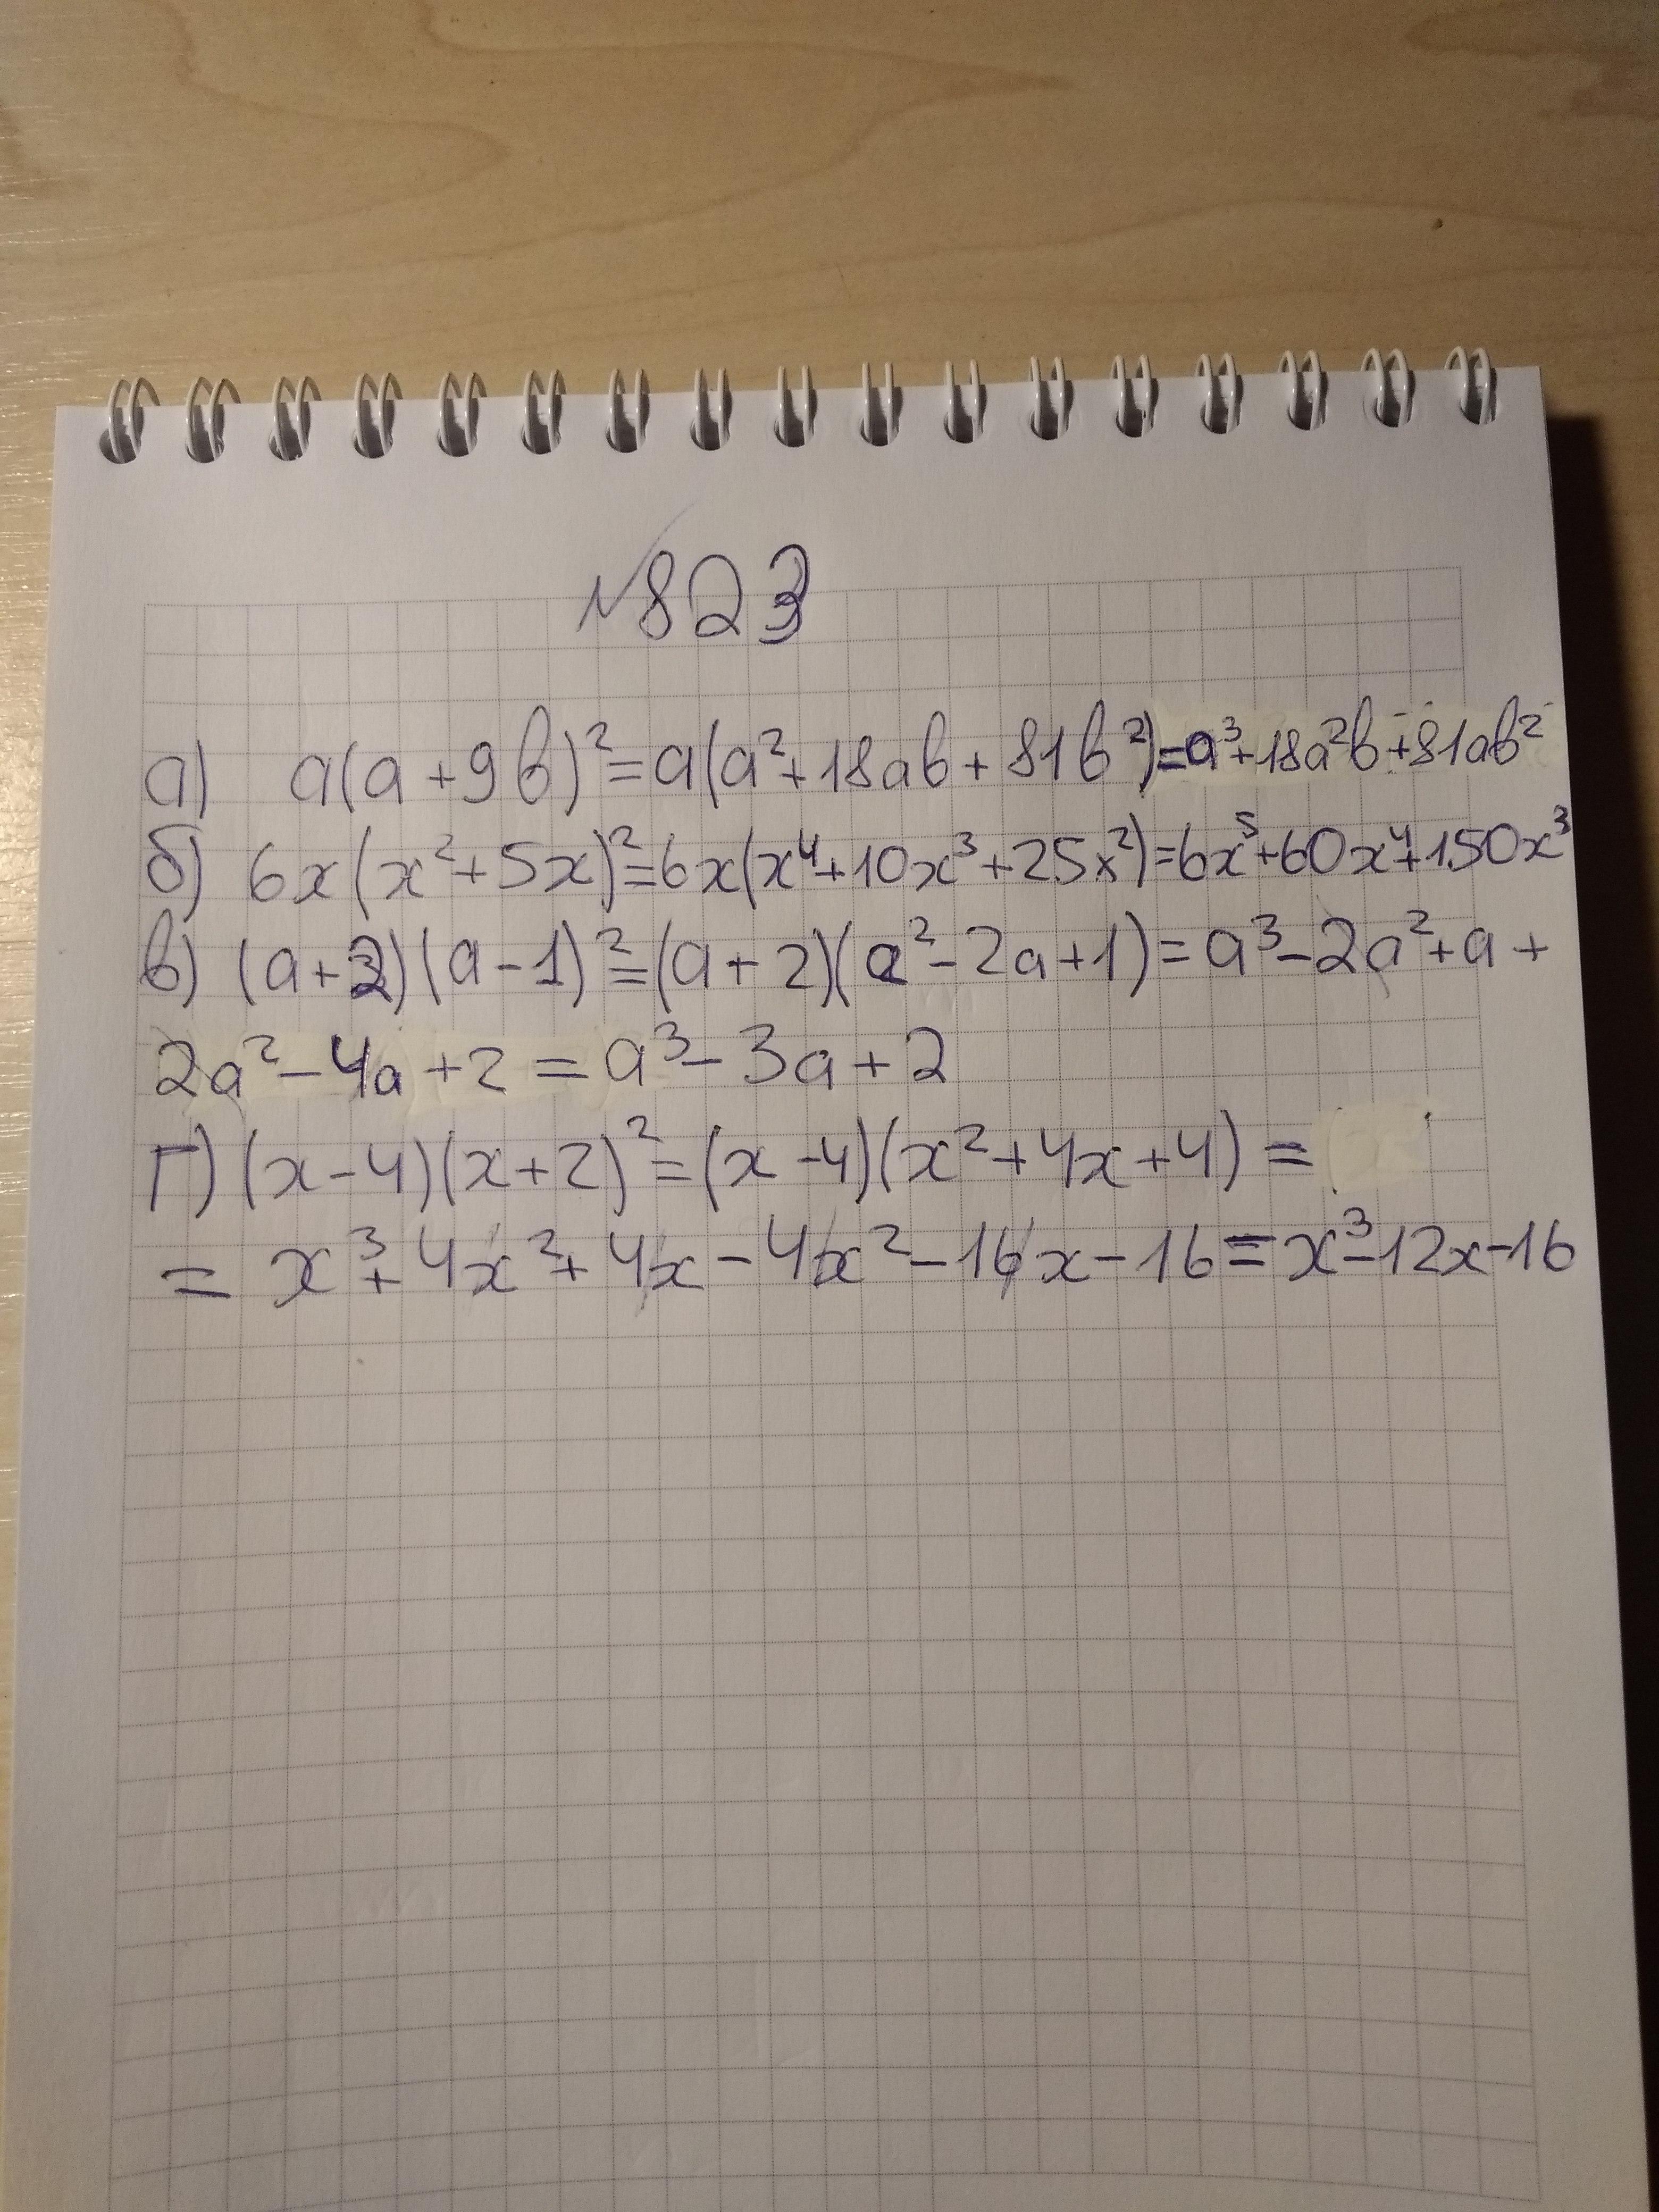 №823
а) a(a+9b)²=a(a²+18ab+81b²)=a³+18a²b+81ab²
б) 6x(x²+5x)²=6x(x⁴+10x³+25x²)=6x⁵+60x⁴+150x³
в) (a+2)(a-1)²=(a+2)(a²-2a+1)=a³-2a²+a+
2a²-4a+2=a³-3a+2
г) (x-4)(x+2)²=(x-4)(x²+4x+4)=
=x³+4x²+4x-4x²-16x-16=x³-12x-16